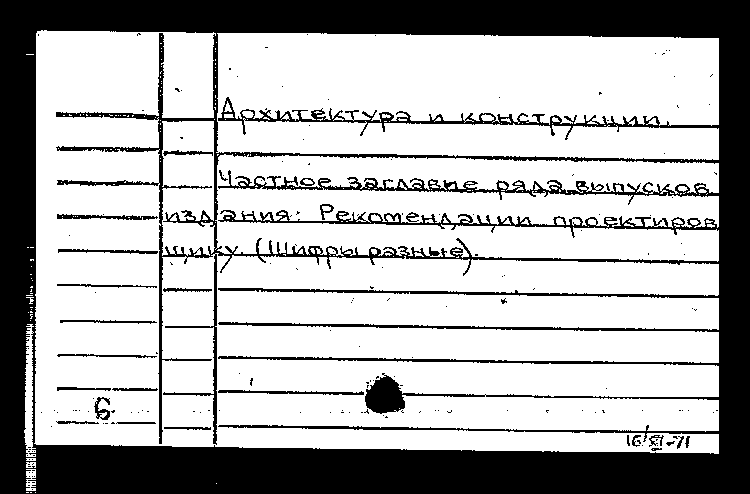 Архитектура и конструкции.
Частное заглавие ряда выпусков
издания: Рекомендации проектиров
щику. (Шифры разные).
6
16/XII-71